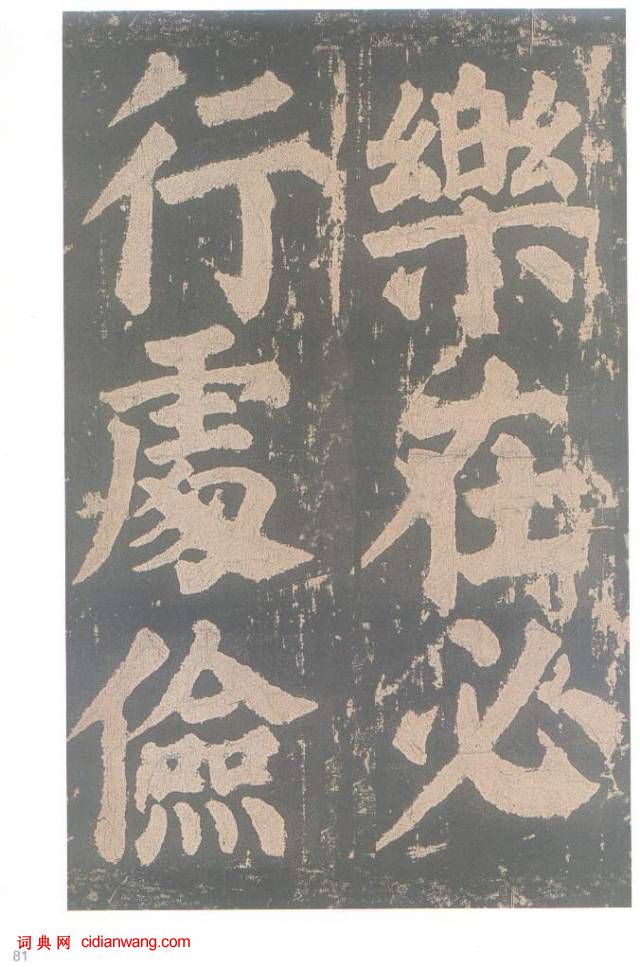 樂在必
行處儉
词典网 cidianwang.com
81